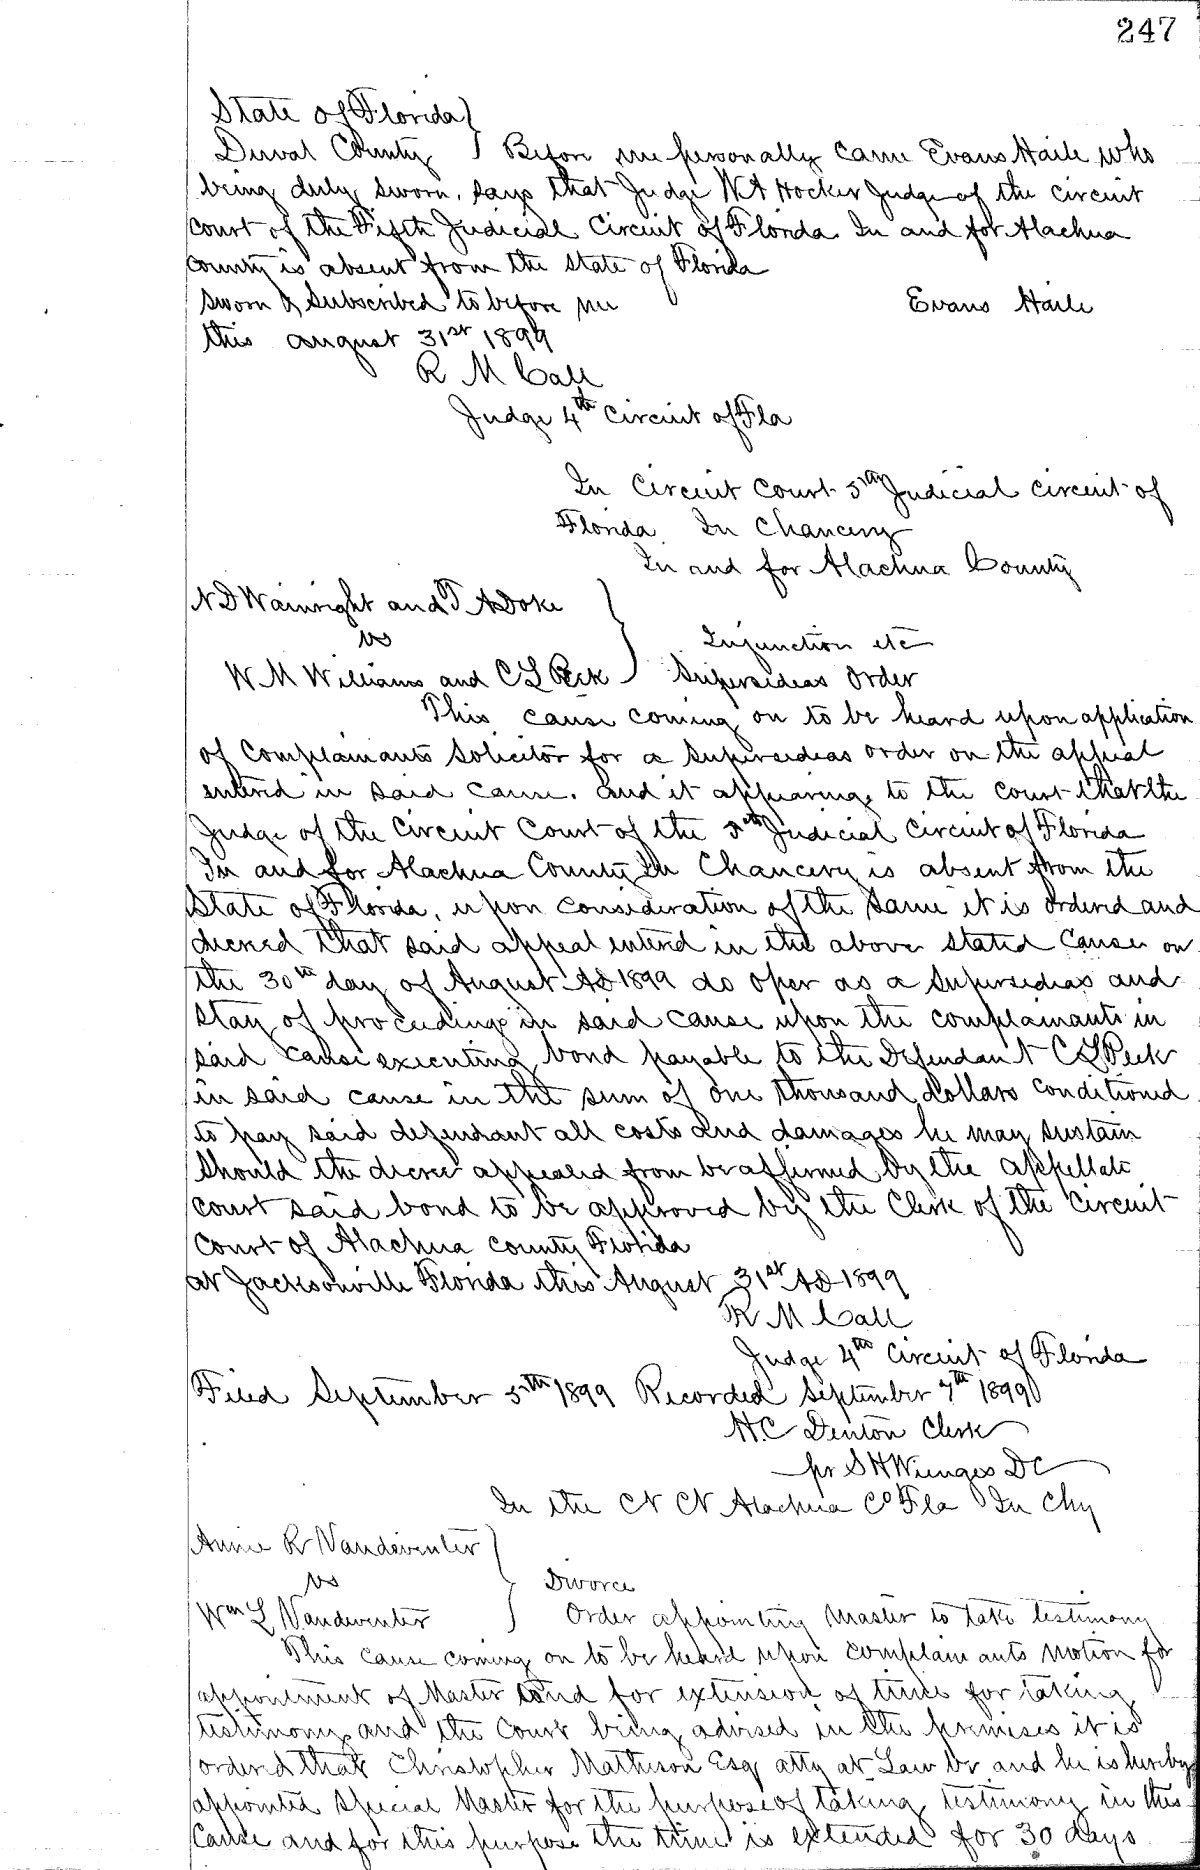 247
State of Florida
Duval County } Before me personally came Evans Haile who
being duly sworn, says that Judge W A Hocker Judge of the circuit
court of the Fifth Judicial Circuit of Florida In and for Alachua
County is absent from the State of Florida
Sworn & Subscribed to before me Evans Haile
this august 31st 1899
R M Call
Judge 4th Circuit of Fla
In Circuit Court 5th Judicial circuit of
Florida In Chancery
In and for Alachua County
N D Wainright and T A Doke
vs } Injunction etc
W M Williams and C L Peck Supersedeas Order
This cause coming on to be heard upon application
of Complainants Solicitor for a Supersedeas order on the appeal
entered in said cause. and it appearing to the court that the
Judge of the Circuit Court of the 5th Judicial Circuit of Florida
In and for Alachua County In Chancery is absent from the
State of Florida, upon consideration of the same it is ordered and
decreed that said appeal entered in the above stated cause on
the 30th day of August AD 1899 do oper as a Supersedeas and
stay of proceedings in said cause upon the complainants in
said cause executing bond payable to the Defendant C L Peck
in said cause in the sum of one thousand dollars conditioned
to pay said defendant all costs and damages he may sustain
Should the decree appealed from be affirmed by the appellate
court said bond to be approved by the Clerk of the Circuit
Court of Alachua County Florida
at Jacksonville Florida this August 31st AD 1899
R M Call
Judge 4th Circuit of Florida
Filed September 5th 1899 Recorded September 7th 1899
H.C Denton Clerk
pr S H Wienges DC
In the Ct Ct Alachua Co Fla In Chy
Annie R Vandeventer
vs } Divorce
Wm L Vandeventer Order appointing Master to take testimony
This cause coming on to be heard upon complainants motion for
appointment of Master and for extension of time for taking
testimony and the Court being advised in the premises it is
ordered that Christopher Matheson Esq atty at Law be and he is hereby
appointed Special Master for the purpose of taking testimony in this
Cause and for this purpose the time is extended for 30 days